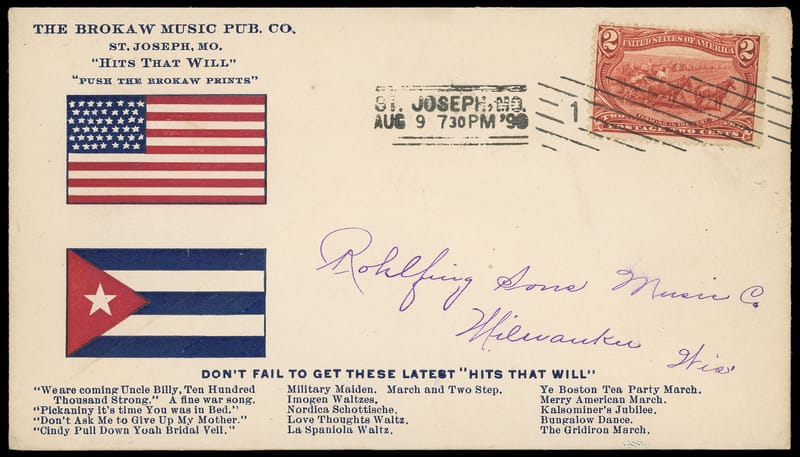 THE BROKAW MUSIC PUB. CO.
ST. JOSEPH, MO.
"HITS THAT WILL"
"PUSH THE BROKAW PRINTS"
ST. JOSEPH, MO.
AUG 9 730 PM '98
1
2 2
UNITED STATES OF AMERICA
TWO CENTS
Rohlfing Sons Music Co.
Milwaukee
Wis
DON'T FAIL TO GET THESE LATEST "HITS THAT WILL"
"We are coming Uncle Billy, Ten Hundred
Thousand Strong." A fine war song.
"Pickaniny it's time You was in Bed."
"Don't Ask Me to Give Up My Mother."
"Cindy Pull Down Yoah Bridal Veil."
Military Maiden. March and Two Step.
Imogen Waltzes.
Nordica Schottische.
Love Thoughts Waltz.
La Spaniola Waltz.
Ye Boston Tea Party March.
Merry American March.
Kalsominer's Jubilee.
Bungalow Dance.
The Gridiron March.